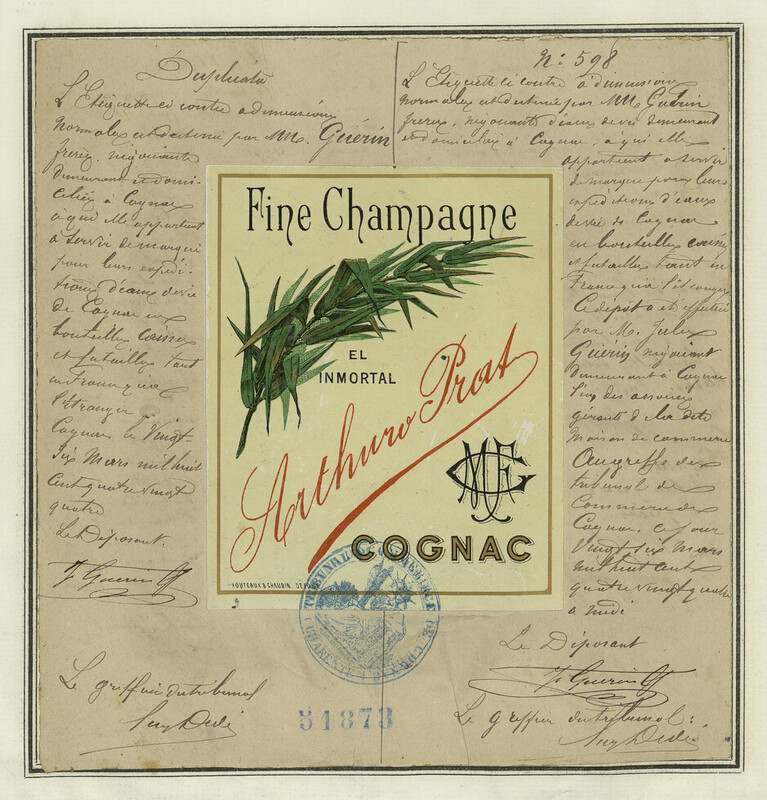 Duplicata
L'Etiquette ci contre a dimensions
normales est destinée par MM. Guérin
frères, négociants
demeurant et domi-
ciliés à Cognac
à qui elle appartient
à servir de marque
pour leurs expédi-
tions d'eaux de vie
de Cognac en
bouteilles caisses
et futailles tant
en France qu'à
l'étranger
Cognac le Vingt
six Mars mil huit
cent quatre vingt
quatre
Le Déposant
J. Guerin
Le greffier du tribunal
N: 598
L'Etiquette ci contre à dimensions
normales est destinée par MM. Guérin
frères, négociants d'eaux de vie demeurant
et domiciliés à Cognac, à qui elle
appartient à servir
de marque pour leurs
expéditions d'eaux
de vie de Cognac
en bouteilles caisses
et futailles tant en
France qu'à l'étranger
Ce dépôt a été effectué
par M. Jules
Guérin négociant
demeurant à Cognac
l'un des associés
gérants de la dite
maison de commerce
Au greffe du
tribunal de
Commerce de
Cognac, ce jour
Vingt six Mars
mil huit cent
quatre vingt quatre
à midi
Le Déposant
J. Guerin
Le greffier du tribunal:
Fine Champagne
EL
INMORTAL
Arthuro Prat
COGNAC
TRIBUNAL DE COMMERCE DE COGNAC
(CHARENTE)
51873